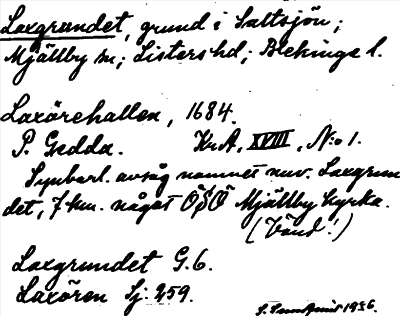 Laxgrundet, grund i Saltsjön;
Mjällby sn; Listers hd; Blekinge l.
Laxörehallen, 1684.
P. Gedda. Kr A, XVIII, N:o 1.
Synbarl. avsåg namnet nuv. Laxgrun
det, 7 km. något ÖSÖ Mjällby kyrka.
(Vänd!)
Laxgrundet G.6.
Laxören Sj: 259.
1936.